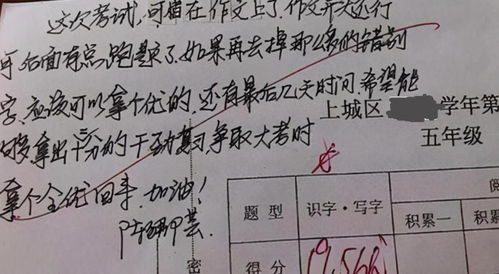 这次考试，可惜在作文上了，作文开头还行
可后面有点跑题了，如果再去掉那么多的错别
字，应该可以拿个优的，还有最后几天时间，希望能
够拿出十分的干劲复习，争取大考时
拿个全优回来，加油！
上城区 学年第
五年级
题型
识字·写字
积累一
积累
得分
密